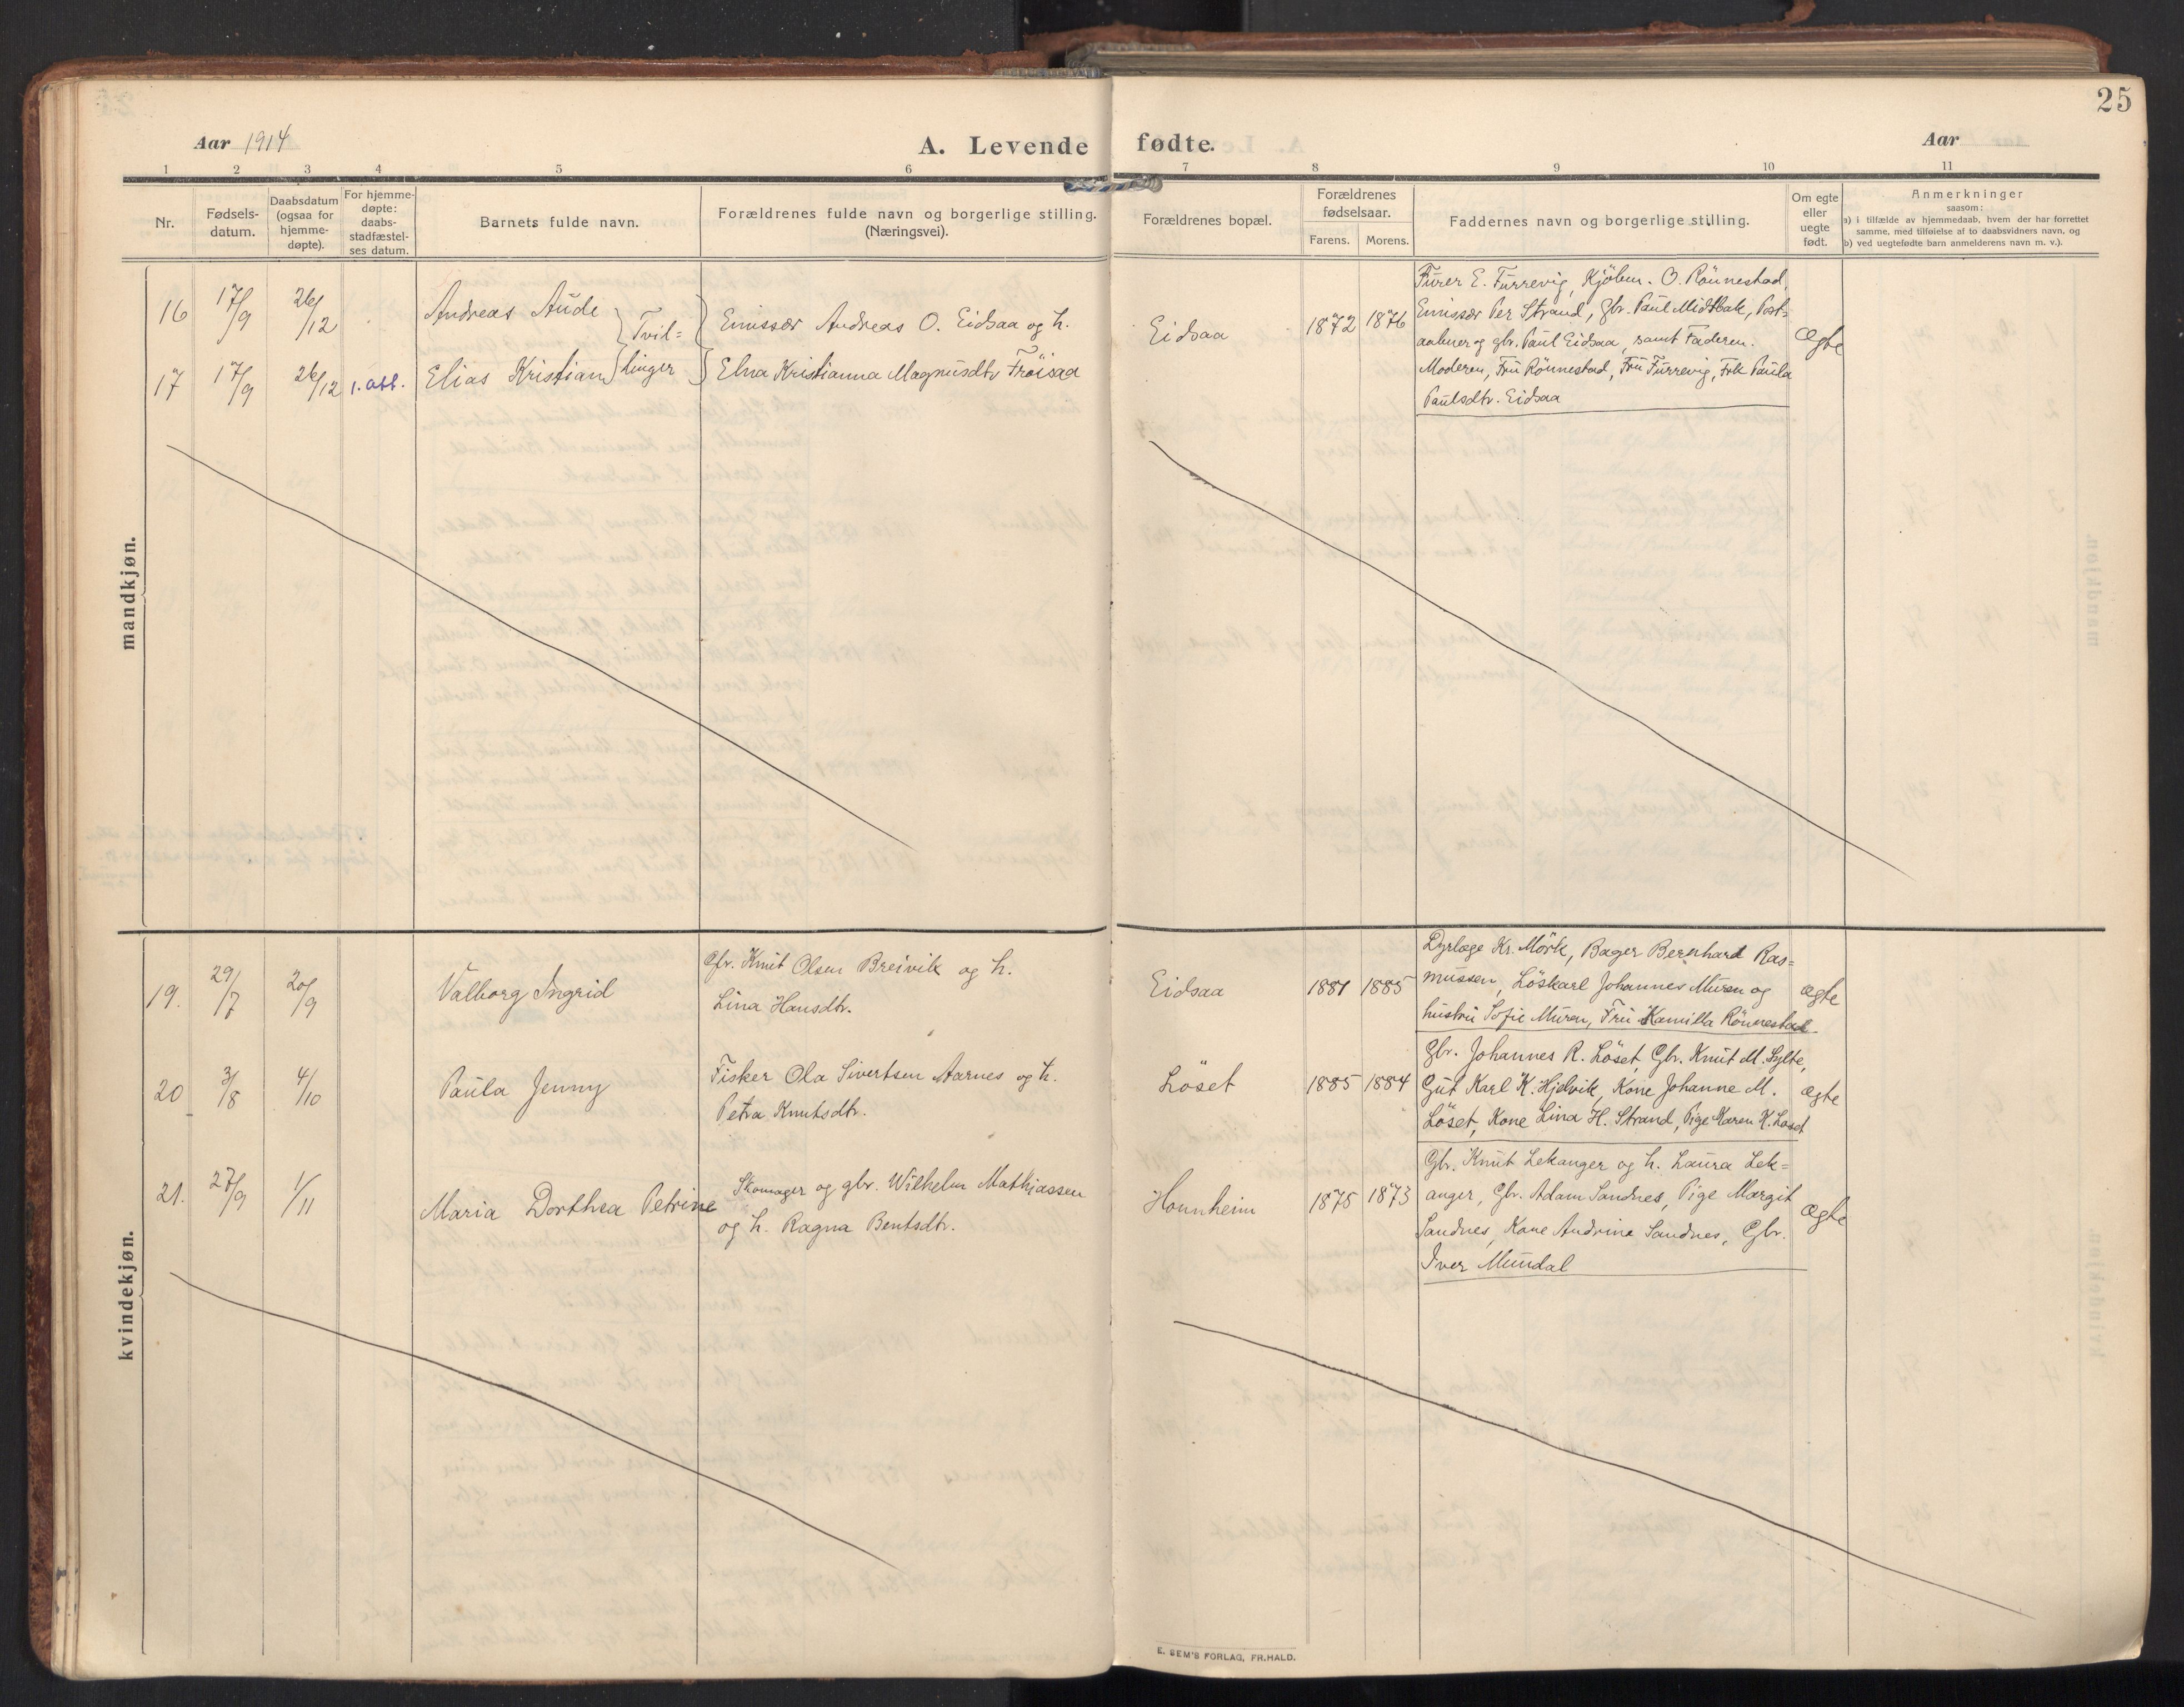 25
Aar 1914
A. Levende fødte.
Aar
1 2 3 4 5 6 7 8 9 10 11
Nr.
Fødsels-
datum.
Daabsdatum
(ogsaa for
hjemme-
døpte).
For hjemme-
døpte:
daabs-
stadfæstel-
ses datum.
Barnets fulde navn.
Forældrenes fulde navn og borgerlige stilling.
(Næringsvei).
Forældrenes bopæl.
Forældrenes
fødselsaar.
Farens. Morens.
Faddernes navn og borgerlige stilling.
Om egte
eller
uegte
født.
Anmerkninger
saasom:
a) i tilfælde av hjemmedaab, hvem der har forrettet
samme, med tilføielse af to daabsvidners navn, og
b) ved uegtefødte barn anmelderens navn m. v.).
mandkjøn.
16 17/9 26/12 Andreas Aude
17 17/9 26/12 1. att. Elias Kristian
Tvil=
linger
Emissær Andreas O. Eidsaa og h.
Elna Kristianna Magnusdtr Fröisaa
Eidsaa 1872 1876
Furer E. Furrevig, Kjöbm. O. Rönnestad,
Emissær Per Strand, gbr. Paul Midtbak, Post=
aabner og gbr. Paul Eidsaa, samt Faderen.
Moderen, Fru Rönnestad, Fru Furrevig, Frk Paula
Paulsdtr. Eidsaa
Ægte
kvindekjøn.
19. 29/7 20/9 Valborg Ingrid
Gbr. Knut Olsen Breivik og h.
Lina Hansdtr.
Eidsaa 1881 1885
Dyrlæge Kr. Mörk, Bager Bernhard Ras=
mussen, Löskarl Johannes Muren og
hustru Sofie Muren, Fru Kamilla Rönnestad
Ægte
20 3/8 4/10 Paula Jenny
Fisker Ola Sivertsen Aarnes og h.
Petra Knutsdtr.
Löset 1885 1884
Gbr. Johannes R. Löset, Gbr. Knut M. Sylte,
Gut Karl K. Hjelvik, Kone Johanne M.
Löset, Kone Lina H. Strand, Pige Karen K. Löset
Ægte
21. 27/9 1/11 Maria Dorthea Petrine
Skomager og gbr. Wilhelm Mathiassen
og h. Ragna Bentsdtr.
Honnheim 1875 1873
Gbr. Knut Lekanger og h. Laura Lek=
anger, Gbr. Adam Sandnes, Pige Margit
Sandnes, Kone Andrina Sandnes, Gbr.
Iver Mundal
Ægte
E. SEM'S FORLAG, FR.HALD.